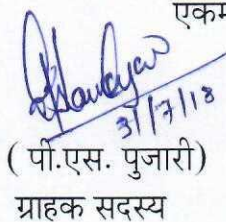 एकम
3/7/18
( पी.एस. पुजारी)
ग्राहक सदस्य